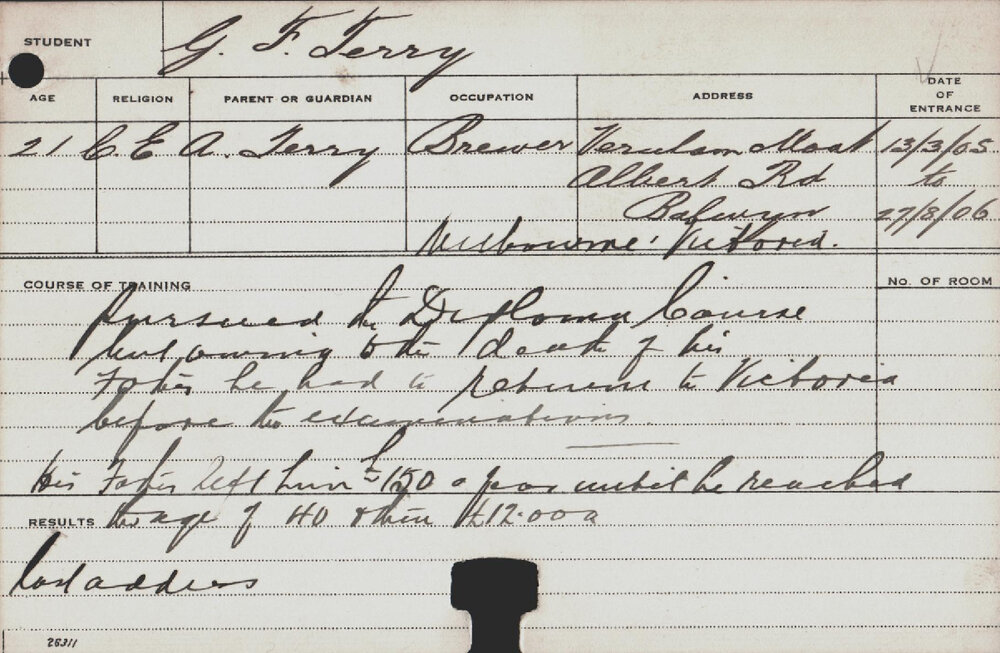 STUDENT G. F. Terry
AGE RELIGION PARENT OR GUARDIAN OCCUPATION ADDRESS DATE OF ENTRANCE
21 C.E A. Terry Brewer Verulam 13/3/05
Albert Rd to
Balwyn 27/8/06
Melbourne. Victoria.
COURSE OF TRAINING No. OF ROOM
Pursued the Diploma Course
but owing to the death of his
Father he had to return to Victoria
before the examinations.
His Father left him £150 a year until he reached
RESULTS the age of 40 & then £12.000
Last address
26311